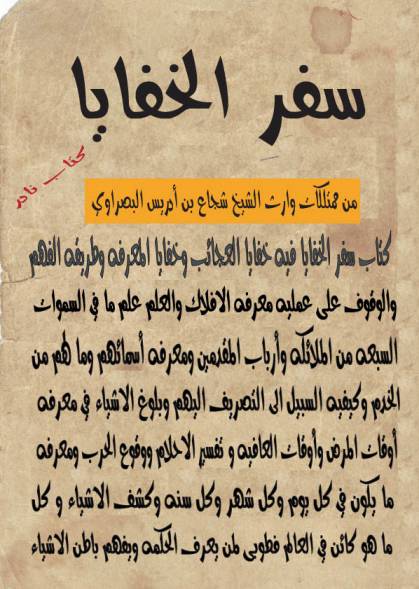 سفر الخفايا
كتاب نادر
من ممتلكات وارث الشيخ شجاع بن أدريس البصراوي
كتاب سفر الخفايا فيه خفايا العجائب وخفايا المعرفه وطريقه الفهم
والوقوف على عمليه معرفه الافلاك والعلم علم ما في السموات
السبعه من الملائكه وأرباب المقدمين ومعرفه أسمائهم وما لهم من
الخدم وكيفيه السبيل الى التصريف اليهم وبلوغ الاشياء في معرفه
أوقات المرض وأوقات العافيه و تفسير الاحلام ووقوع الحرب ومعرفه
ما يكون في كل يوم وكل شهر وكل سنه وكشف الاشياء و كل
ما هو كائن في العالم فطوبى لمن يعرف الحكمه ويفهم باطن الاشياء